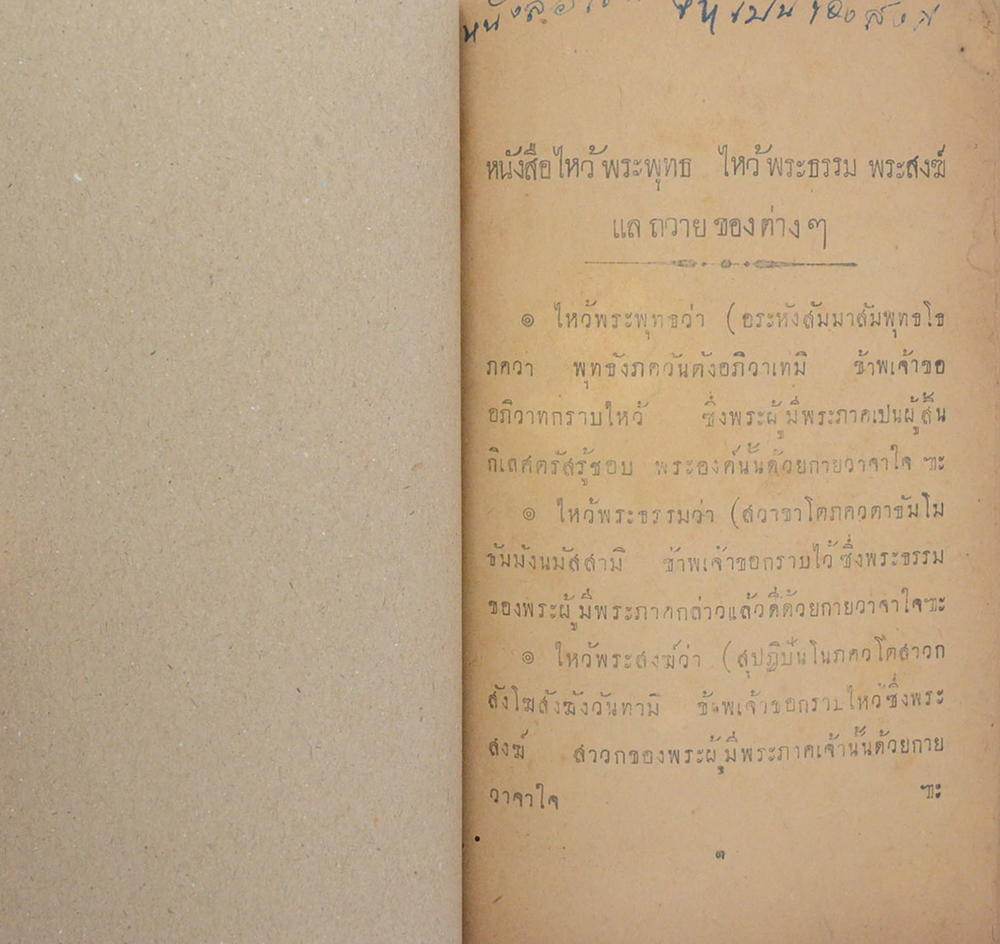 หนังสือ ของสงฆ
หนังสือไหว้พระพุทธ ไหว้พระธรรม พระสงฆ์
แล ถวาย ของต่าง ๆ
๏ ไหว้พระพุทธว่า (อระหังสัมมาสัมพุทธโธ
ภควา พุทธังภควันตังอภิวาเทมิ ข้าพเจ้าขอ
อภิวาทกราบไหว้ ซึ่งพระผู้มีพระภาคเปนผู้สิ้น
กิเลศตรัสรู้ชอบ พระองค์นั้นด้วยกายวาจาใจ ฯะ
๏ ไหว้พระธรรมว่า (สวาขาโตภควตาธัมโม
ธัมมังนมัสสามิ ข้าพเจ้าขอกราบไว้ซึ่งพระธรรม
ของพระผู้มีพระภาคกล่าวแล้วดีด้วยกายวาจาใจฯะ
๏ ไหว้พระสงฆ์ว่า (สุปฏิปันโนภควโตสาวก
สังโฆสังฆังวันทามิ ข้าพเจ้าขอกราบไหว้ซึ่งพระ
สงฆ์ สาวกของพระผู้มีพระภาคเจ้านั้นด้วยกาย
วาจาใจ ฯะ
๓